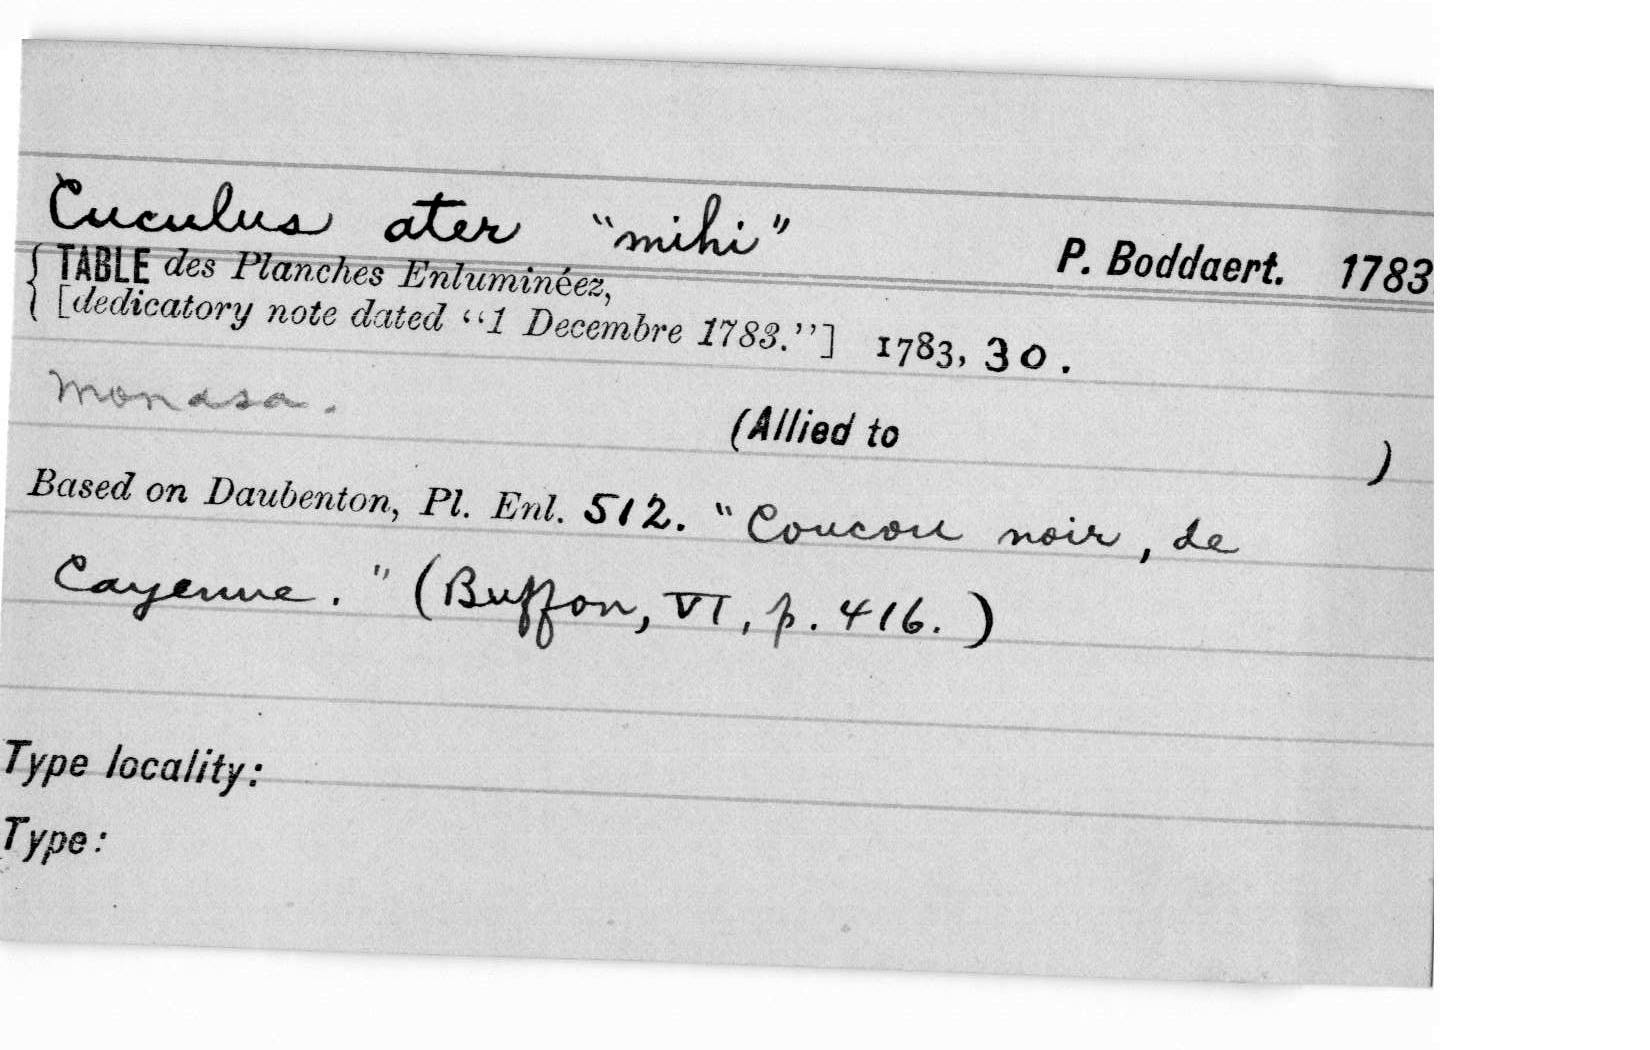 Cuculus ater "mihi"
P. Boddaert. 1783
TABLE des Planches Enluminéez,
[dedicatory note dated "1 Decembre 1783."] 1783, 30.
Monasa.
(Allied to )
Based on Daubenton, Pl. Enl. 512. "Coucou noir, de
Cayenne." (Buffon, VI, p. 416.)
Type locality:
Type: